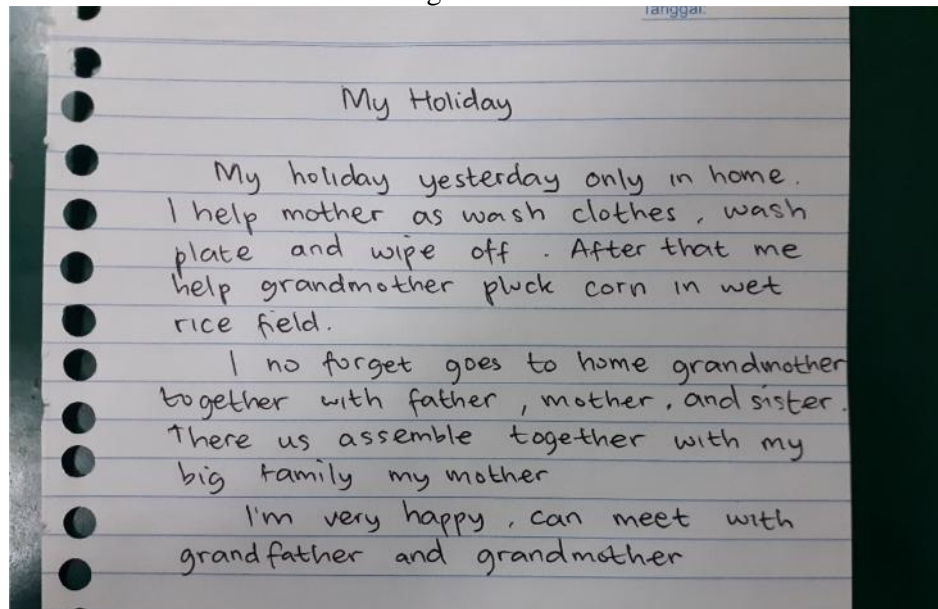 Tanggal:
My Holiday
My holiday yesterday only in home.
I help mother as wash clothes, wash
plate and wipe off. After that me
help grandmother pluck corn in wet
rice field.
I no forget goes to home grandmother
together with father, mother, and sister.
There us assemble together with my
big family my mother
I'm very happy, can meet with
grandfather and grandmother